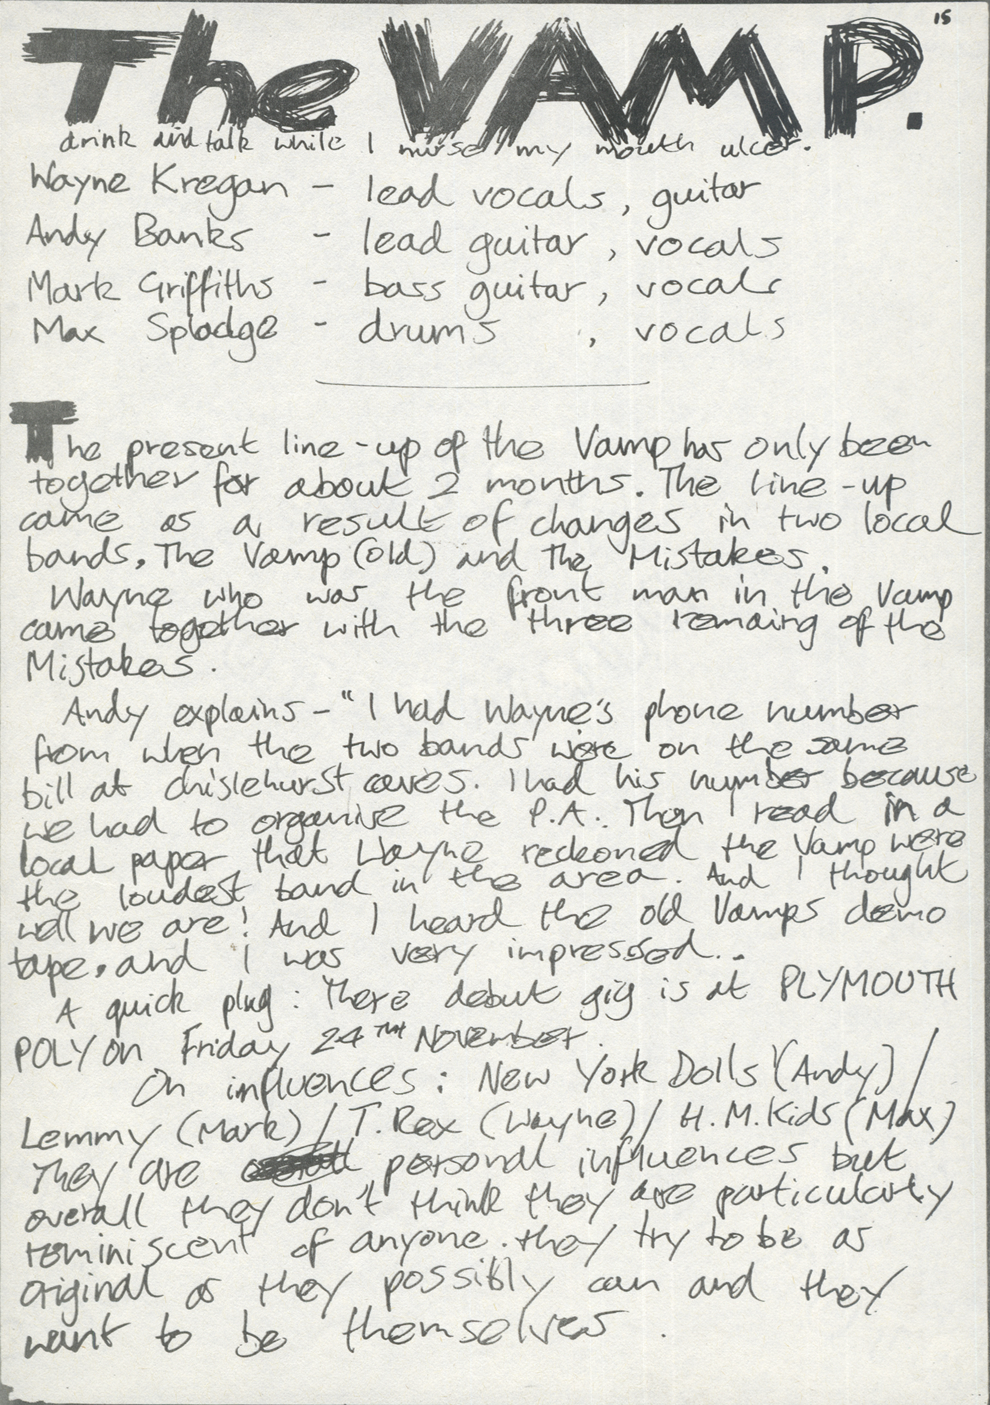 15
The VAMP.
drink and talk while I nurse my mouth ulcer.
Wayne Kregan - lead vocals, guitar
Andy Banks - lead guitar, vocals
Mark Griffiths - bass guitar, vocals
Max Splodge - drums , vocals
The present line-up of the Vamp has only been
together for about 2 months. The line-up
came as a result of changes in two local
bands. The Vamp (old) and The Mistakes.
Wayne who was the front man in the Vamp
came together with the three remaing of the
Mistakes.
Andy explains - "I had Wayne's phone number
from when the two bands were on the same
bill at chislehurst caves. I had his number because
we had to organise the P.A.. Then I read in a
local paper that Wayne reckoned the Vamp were
the loudest band in the area. And I thought
well we are! And I heard the old Vamps demo
tape, and I was very impressed..
A quick plug: There debut gig is at PLYMOUTH
POLY on Friday 24TH November.
On influences: New York Dolls (Andy) /
Lemmy (Mark) / T.Rex (Wayne) / H.M.Kids (Max)
They are personal influences but
overall they don't think they are particularly
reminiscent of anyone. they try to be as
original as they possibly can and they
want to be themselves.